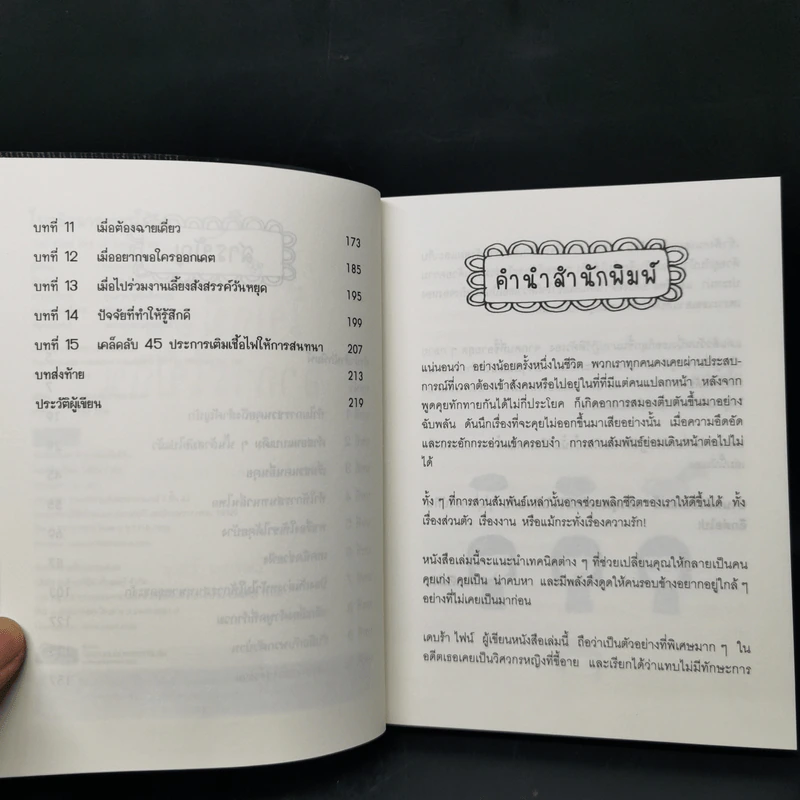 บทที่ 11 เมื่อต้องฉายเดี่ยว 173
บทที่ 12 เมื่ออยากขอใครออกเดต 185
บทที่ 13 เมื่อไปร่วมงานเลี้ยงสังสรรค์วันหยุด 195
บทที่ 14 ปัจจัยที่ทำให้รู้สึกดี 199
บทที่ 15 เคล็ดลับ 45 ประการเติมเชื้อไฟให้การสนทนา 207
บทส่งท้าย 213
ประวัติผู้เขียน 219
คำนำสำนักพิมพ์
แน่นอนว่า อย่างน้อยครั้งหนึ่งในชีวิต พวกเราทุกคนคงเคยผ่านประสบ-
การณ์ที่เวลาต้องเข้าสังคมหรือไปอยู่ในที่ที่มีแต่คนแปลกหน้า หลังจาก
พูดคุยทักทายกันได้ไม่กี่ประโยค ก็เกิดอาการสมองตีบตันขึ้นมาอย่าง
ฉับพลัน ดันนึกเรื่องที่จะคุยไม่ออกขึ้นมาเสียอย่างนั้น เมื่อความอึดอัด
และกระอักกระอ่วนเข้าครอบงำ การสานสัมพันธ์ย่อมเดินหน้าต่อไปไม่
ได้
ทั้ง ๆ ที่การสานสัมพันธ์เหล่านั้นอาจช่วยพลิกชีวิตของเราให้ดีขึ้นได้ ทั้ง
เรื่องส่วนตัว เรื่องงาน หรือแม้กระทั่งเรื่องความรัก!
หนังสือเล่มนี้จะแนะนำเทคนิคต่าง ๆ ที่ช่วยเปลี่ยนคุณให้กลายเป็นคน
คุยเก่ง คุยเป็น น่าคบหา และมีพลังดึงดูดให้คนรอบข้างอยากอยู่ใกล้ ๆ
อย่างที่ไม่เคยเป็นมาก่อน
เดบร้า ไฟน์ ผู้เขียนหนังสือเล่มนี้ ถือว่าเป็นตัวอย่างที่พิเศษมาก ๆ ใน
อดีตเธอเคยเป็นวิศวกรหญิงที่ขี้อาย และเรียกได้ว่าแทบไม่มีทักษะการ